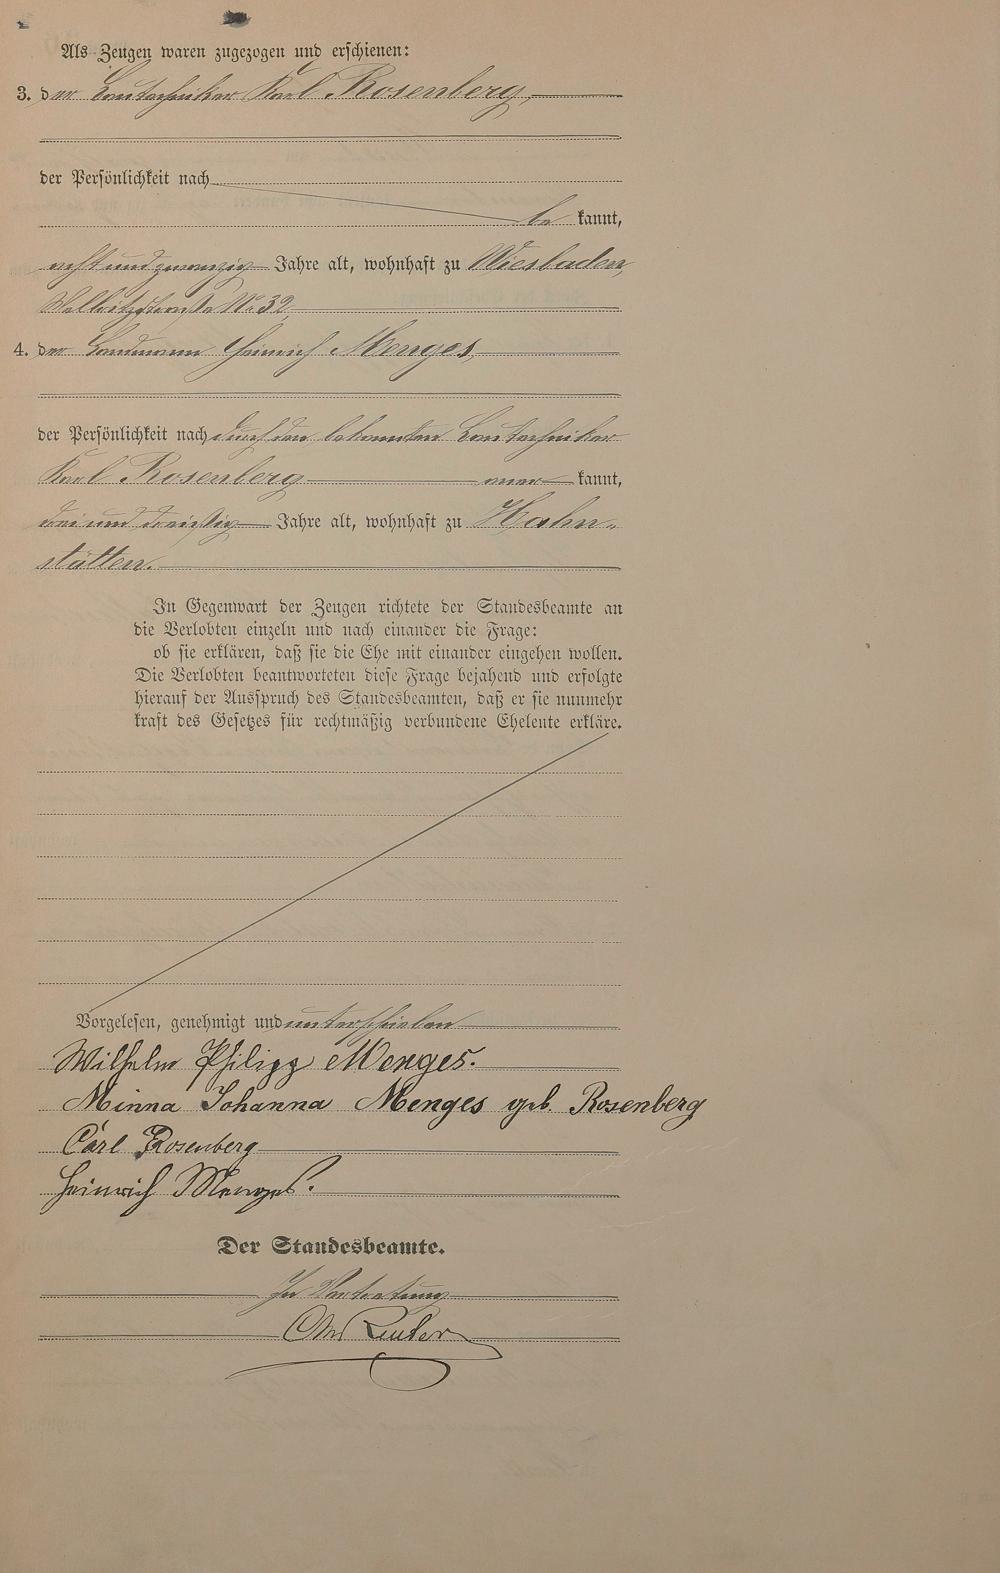 Als Zeugen waren zugezogen und erschienen:
3. der Bautechniker Karl Rosenberg,
der Persönlichkeit nach
be kannt,
acht und zwanzig Jahre alt, wohnhaft zu Wiesbaden,
Wellritzstraße No 32,
4. der Landmann Heinrich Menges,
der Persönlichkeit nach durch den bekannten Bautechniker
Karl Rosenberg aner kannt,
drei und dreißig Jahre alt, wohnhaft zu Hahn-
stätten.
In Gegenwart der Zeugen richtete der Standesbeamte an
die Verlobten einzeln und nach einander die Frage:
ob sie erklären, daß sie die Ehe mit einander eingehen wollen.
Die Verlobten beantworteten diese Frage bejahend und erfolgte
hierauf der Ausspruch des Standesbeamten, daß er sie nunmehr
kraft des Gesetzes für rechtmäßig verbundene Eheleute erkläre.
Vorgelesen, genehmigt und unterschrieben
Wilhelm Philipp Menges.
Minna Johanna Menges geb. Rosenberg
Carl Rosenberg
Heinrich Menges.
Der Standesbeamte.
In Vertretung